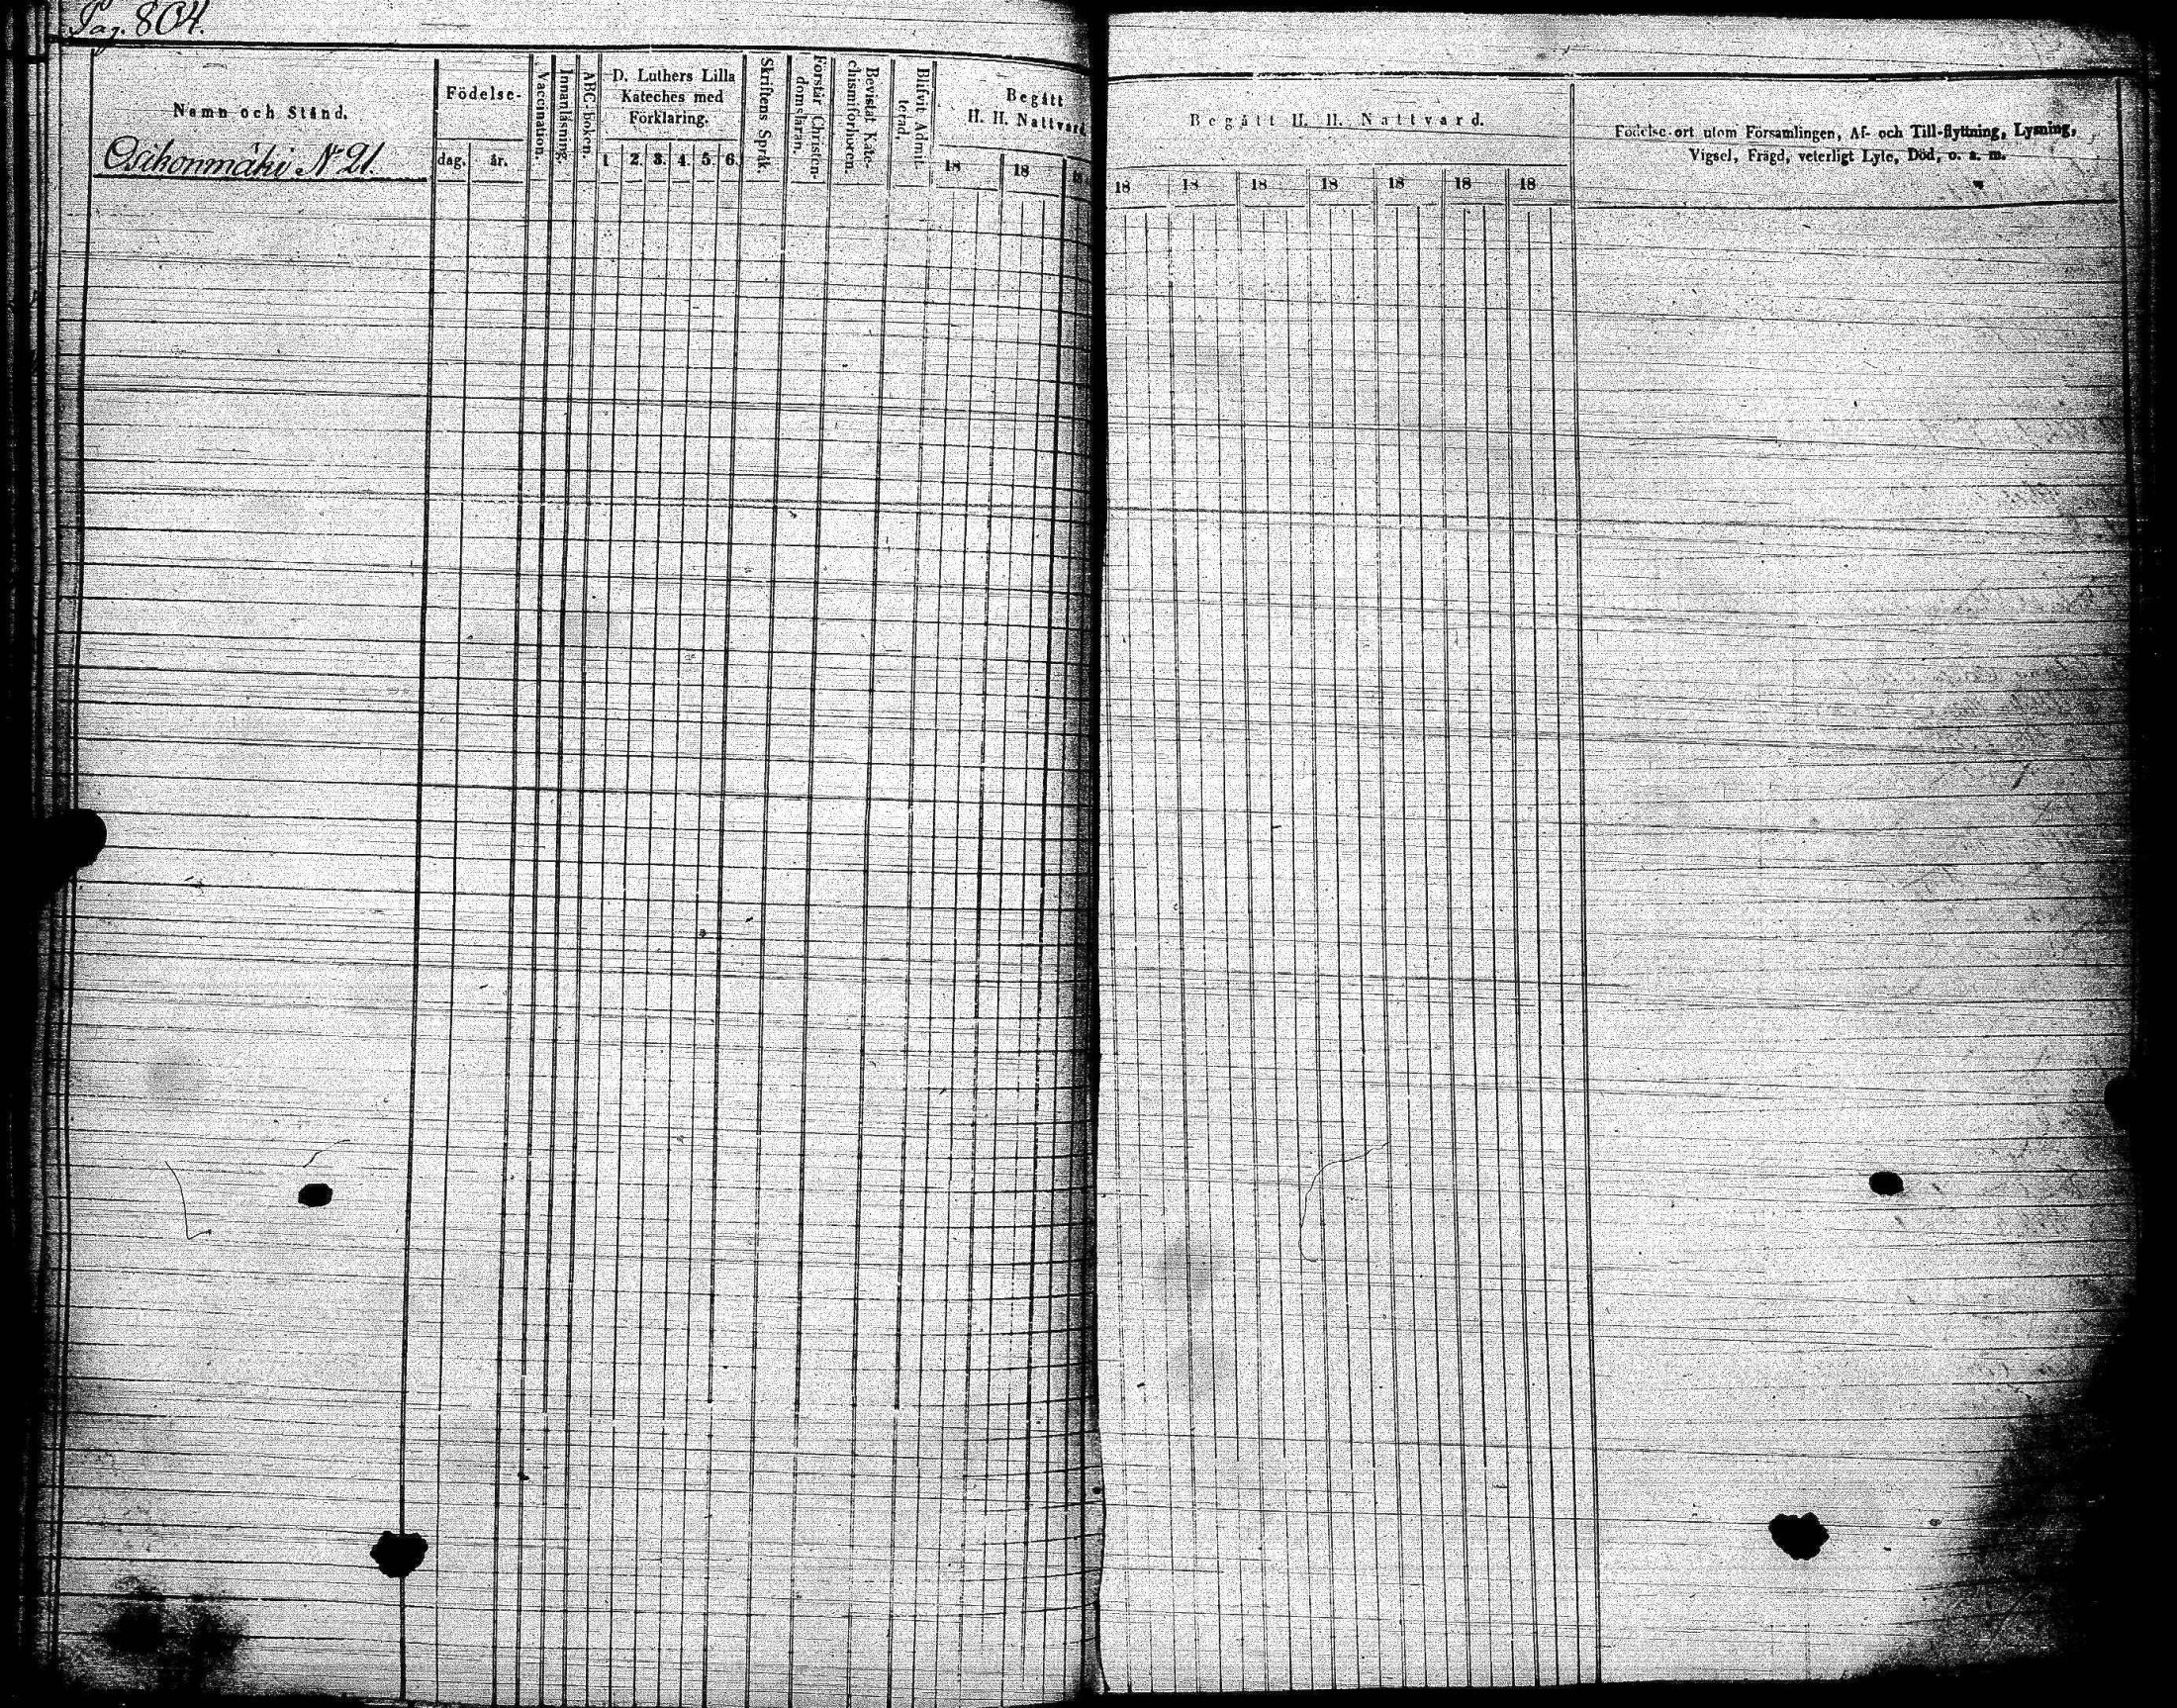 Pag. 804.
Namn och Stånd.
Osikonmäki № 21.
Födelse-
dag.
år.
Vaccination.
Innanläsning.
ABC-boken.
D. Luthers Lilla
Kateches med
Förklaring.
1. 2. 3. 4. 5. 6.
Skriftens Språk.
Förstår Christen-
domsläran.
Bevistat Kate-
chismiförhören.
Blifvit Admit-
terad.
Begått
H. H. Nattvard.
18 18 18
Begått H. H. Nattvard.
18 18 18 18 18 18 18
Födelse-ort utom Församlingen, Af- och Till-flyttning, Lysning,
Vigsel, Frägd, veterligt Lyte, Död, o. s. m.